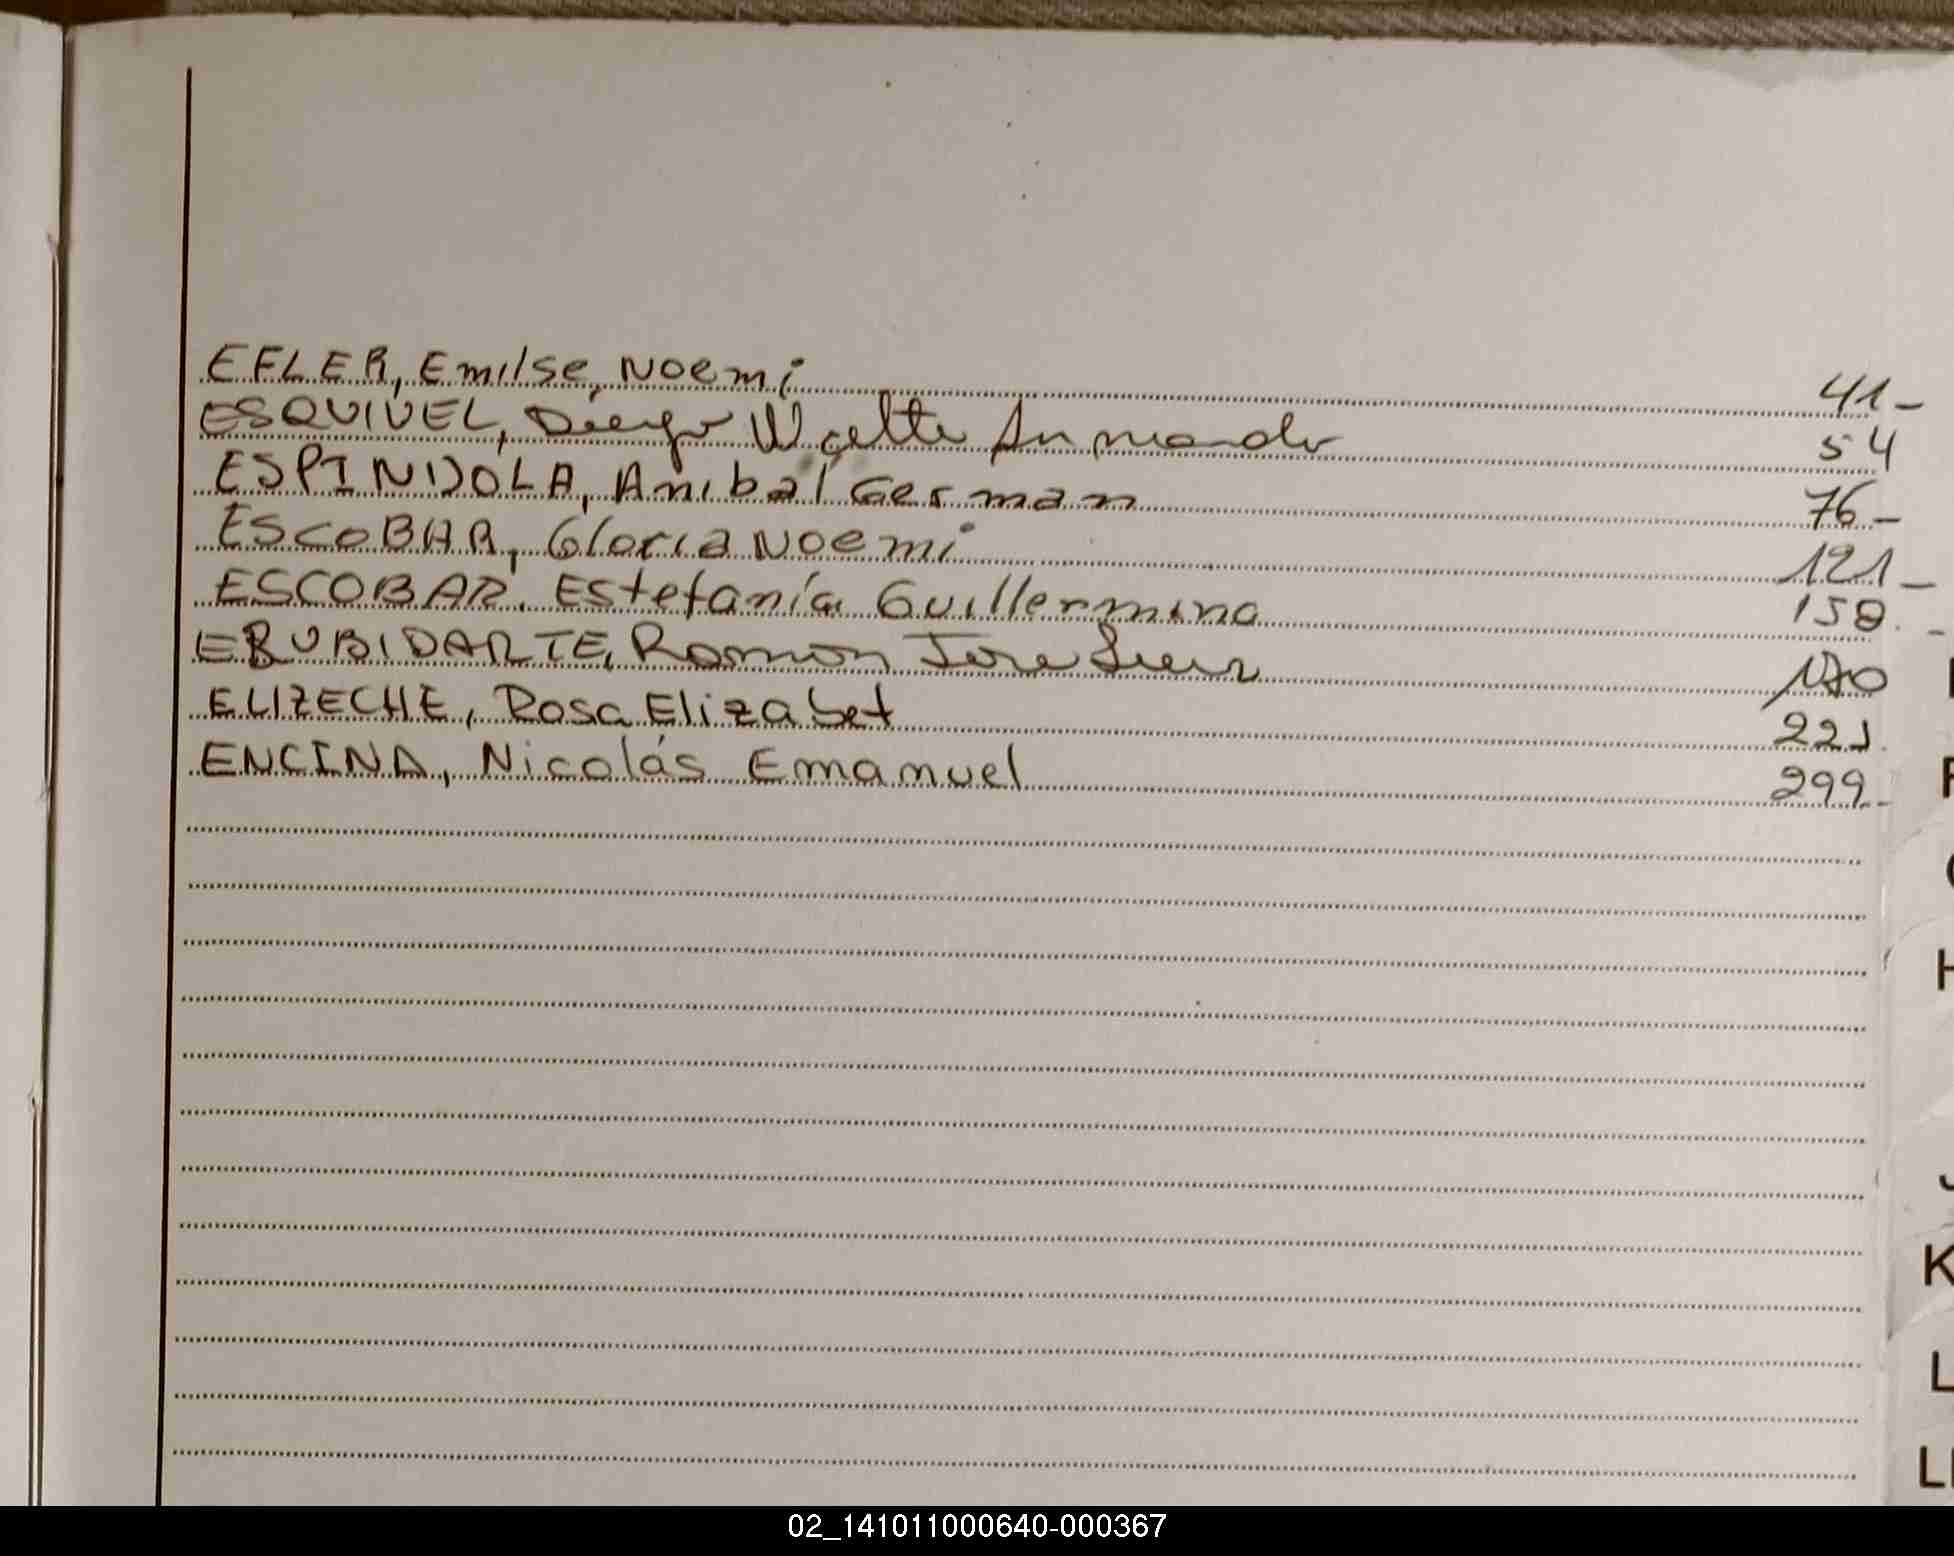 EFLER, Emilse, Noemi 41-
ESQUIVEL, Diego Walter Armando 54
ESPINDOLA, Anibal German 76-
ESCOBAR, Gloria Noemi 121-
ESCOBAR, Estefanía Guillermina 158.-
ERUBIDARTE, Ramon Jose 170
ELIZECHE, Rosa Elizabet 221.
ENCINA, Nicolás Emanuel 299.-
F
H
J
K
L
02_141011000640-000367